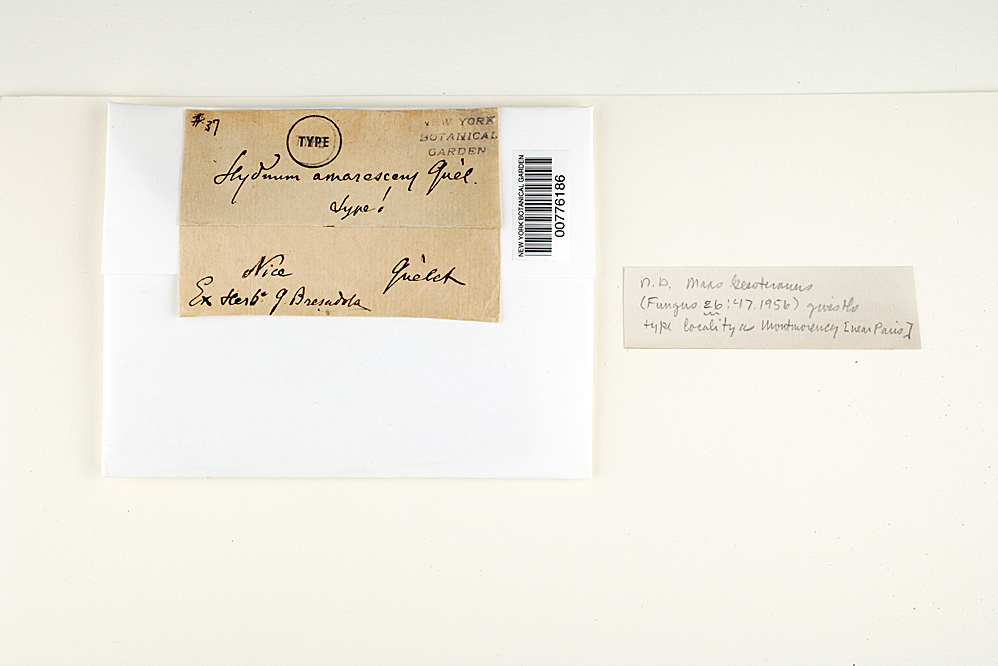 #37
TYPE
NEW YORK
BOTANICAL
GARDEN
Hydnum amarescens Quél.
type!
Nice Quélet
Ex Herb. G Bresadola
NEW YORK BOTANICAL GARDEN
00776186
N.B. Maas Geesteranus
(Fungus 26:47.1956) gives the
type locality as Montmorency [near Paris]